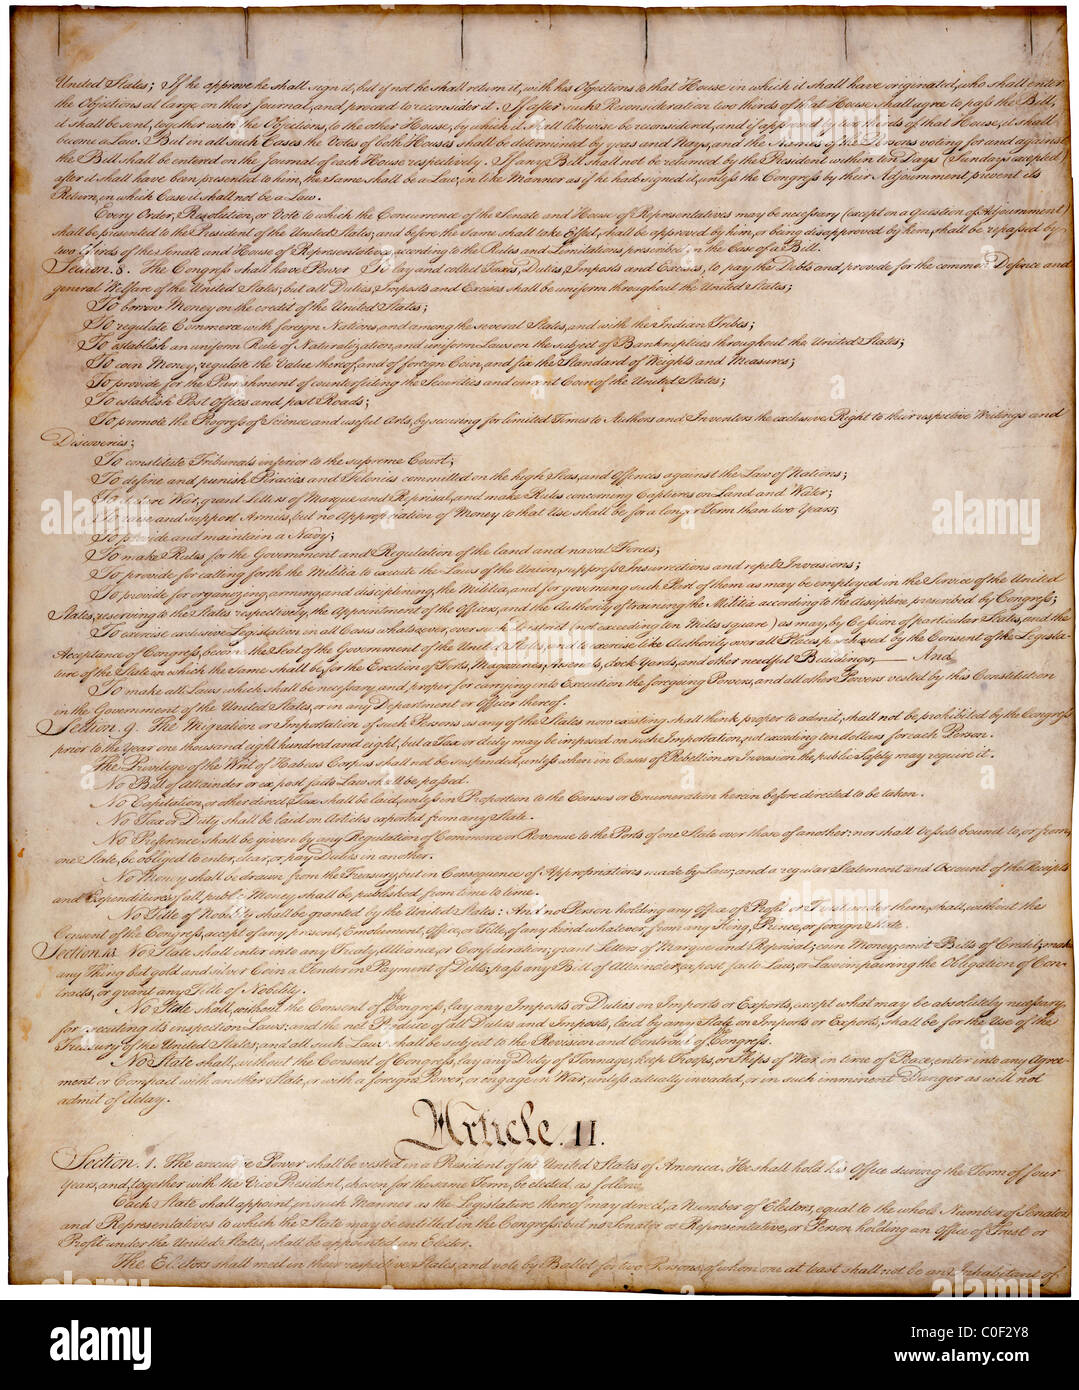 United States; If he approve he shall sign it, but if not he shall return it, with his Objections to that House in which it shall have originated, who shall enter
the Objections at large on their Journal, and proceed to reconsider it. If after such Reconsideration two thirds of that House shall agree to pass the Bill,
it shall be sent, together with the Objections, to the other House, by which it shall likewise be reconsidered, and if approved by two thirds of that House, it shall
become a Law. But in all such Cases the Votes of both Houses shall be determined by yeas and Nays, and the Names of the Persons voting for and against
the Bill shall be entered on the Journal of each House respectively. If any Bill shall not be returned by the President within ten Days (Sundays excepted)
after it shall have been presented to him, the Same shall be a Law, in like Manner as if he had signed it, unless the Congress by their Adjournment prevent its
Return, in which Case it shall not be a Law.
Every Order, Resolution, or Vote to which the Concurrence of the Senate and House of Representatives may be necessary (except on a question of Adjournment)
shall be presented to the President of the United States; and before the Same shall take Effect, shall be approved by him, or being disapproved by him, shall be repassed by
two thirds of the Senate and House of Representatives, according to the Rules and Limitations prescribed in the Case of a Bill.
Section. 8. The Congress shall have Power To lay and collect Taxes, Duties, Imposts and Excises, to pay the Debts and provide for the common Defence and
general Welfare of the United States; but all Duties, Imposts and Excises shall be uniform throughout the United States;
To borrow Money on the credit of the United States;
To regulate Commerce with foreign Nations, and among the several States, and with the Indian Tribes;
To establish an uniform Rule of Naturalization, and uniform Laws on the subject of Bankruptcies throughout the United States;
To coin Money, regulate the Value thereof, and of foreign Coin, and fix the Standard of Weights and Measures;
To provide for the Punishment of counterfeiting the Securities and current Coin of the United States;
To establish Post Offices and post Roads;
To promote the Progress of Science and useful Arts, by securing for limited Times to Authors and Inventors the exclusive Right to their respective Writings and
Discoveries;
To constitute Tribunals inferior to the supreme Court;
To define and punish Piracies and Felonies committed on the high Seas, and Offences against the Law of Nations;
To declare War, grant Letters of Marque and Reprisal, and make Rules concerning Captures on Land and Water;
To raise and support Armies, but no Appropriation of Money to that Use shall be for a longer Term than two Years;
To provide and maintain a Navy;
To make Rules for the Government and Regulation of the land and naval Forces;
To provide for calling forth the Militia to execute the Laws of the Union, suppress Insurrections and repel Invasions;
To provide for organizing, arming, and disciplining, the Militia, and for governing such Part of them as may be employed in the Service of the United
States, reserving to the States respectively, the Appointment of the Officers, and the Authority of training the Militia according to the discipline prescribed by Congress;
To exercise exclusive Legislation in all Cases whatsoever, over such District (not exceeding ten Miles square) as may, by Cession of particular States, and the
Acceptance of Congress, become the Seat of the Government of the United States, and to exercise like Authority over all Places purchased by the Consent of the Legisla-
ture of the State in which the Same shall be, for the Erection of Forts, Magazines, Arsenals, dock-Yards, and other needful Buildings;—And
To make all Laws which shall be necessary and proper for carrying into Execution the foregoing Powers, and all other Powers vested by this Constitution
in the Government of the United States, or in any Department or Officer thereof.
Section. 9. The Migration or Importation of such Persons as any of the States now existing shall think proper to admit, shall not be prohibited by the Congress
prior to the Year one thousand eight hundred and eight, but a Tax or duty may be imposed on such Importation, not exceeding ten dollars for each Person.
The Privilege of the Writ of Habeas Corpus shall not be suspended, unless when in Cases of Rebellion or Invasion the public Safety may require it.
No Bill of Attainder or ex post facto Law shall be passed.
No Capitation, or other direct, Tax shall be laid, unless in Proportion to the Census or Enumeration herein before directed to be taken.
No Tax or Duty shall be laid on Articles exported from any State.
No Preference shall be given by any Regulation of Commerce or Revenue to the Ports of one State over those of another: nor shall Vessels bound to, or from,
one State, be obliged to enter, clear, or pay Duties in another.
No Money shall be drawn from the Treasury, but in Consequence of Appropriations made by Law; and a regular Statement and Account of the Receipts
and Expenditures of all public Money shall be published from time to time.
No Title of Nobility shall be granted by the United States: And no Person holding any Office of Profit or Trust under them, shall, without the
Consent of the Congress, accept of any present, Emolument, Office, or Title, of any kind whatever, from any King, Prince, or foreign State.
Section. 10. No State shall enter into any Treaty, Alliance, or Confederation; grant Letters of Marque and Reprisal; coin Money; emit Bills of Credit; make
any Thing but gold and silver Coin a Tender in Payment of Debts; pass any Bill of Attainder, ex post facto Law, or Law impairing the Obligation of Con-
tracts, or grant any Title of Nobility.
No State shall, without the Consent of the Congress, lay any Imposts or Duties on Imports or Exports, except what may be absolutely necessary
for executing its inspection Laws: and the net Produce of all Duties and Imposts, laid by any State on Imports or Exports, shall be for the Use of the
Treasury of the United States; and all such Laws shall be subject to the Revision and Controul of the Congress.
No State shall, without the Consent of Congress, lay any Duty of Tonnage, keep Troops, or Ships of War in time of Peace, enter into any Agree-
ment or Compact with another State, or with a foreign Power, or engage in War, unless actually invaded, or in such imminent Danger as will not
admit of delay.
Article. II.
Section. 1. The executive Power shall be vested in a President of the United States of America. He shall hold his Office during the Term of four
Years, and, together with the Vice President, chosen for the same Term, be elected, as follows
Each State shall appoint, in such Manner as the Legislature thereof may direct, a Number of Electors, equal to the whole Number of Senators
and Representatives to which the State may be entitled in the Congress: but no Senator or Representative, or Person holding an Office of Trust or
Profit under the United States, shall be appointed an Elector.
The Electors shall meet in their respective States, and vote by Ballot for two Persons, of whom one at least shall not be an Inhabitant of
alamy
Image ID: C0F2Y8
www.alamy.com